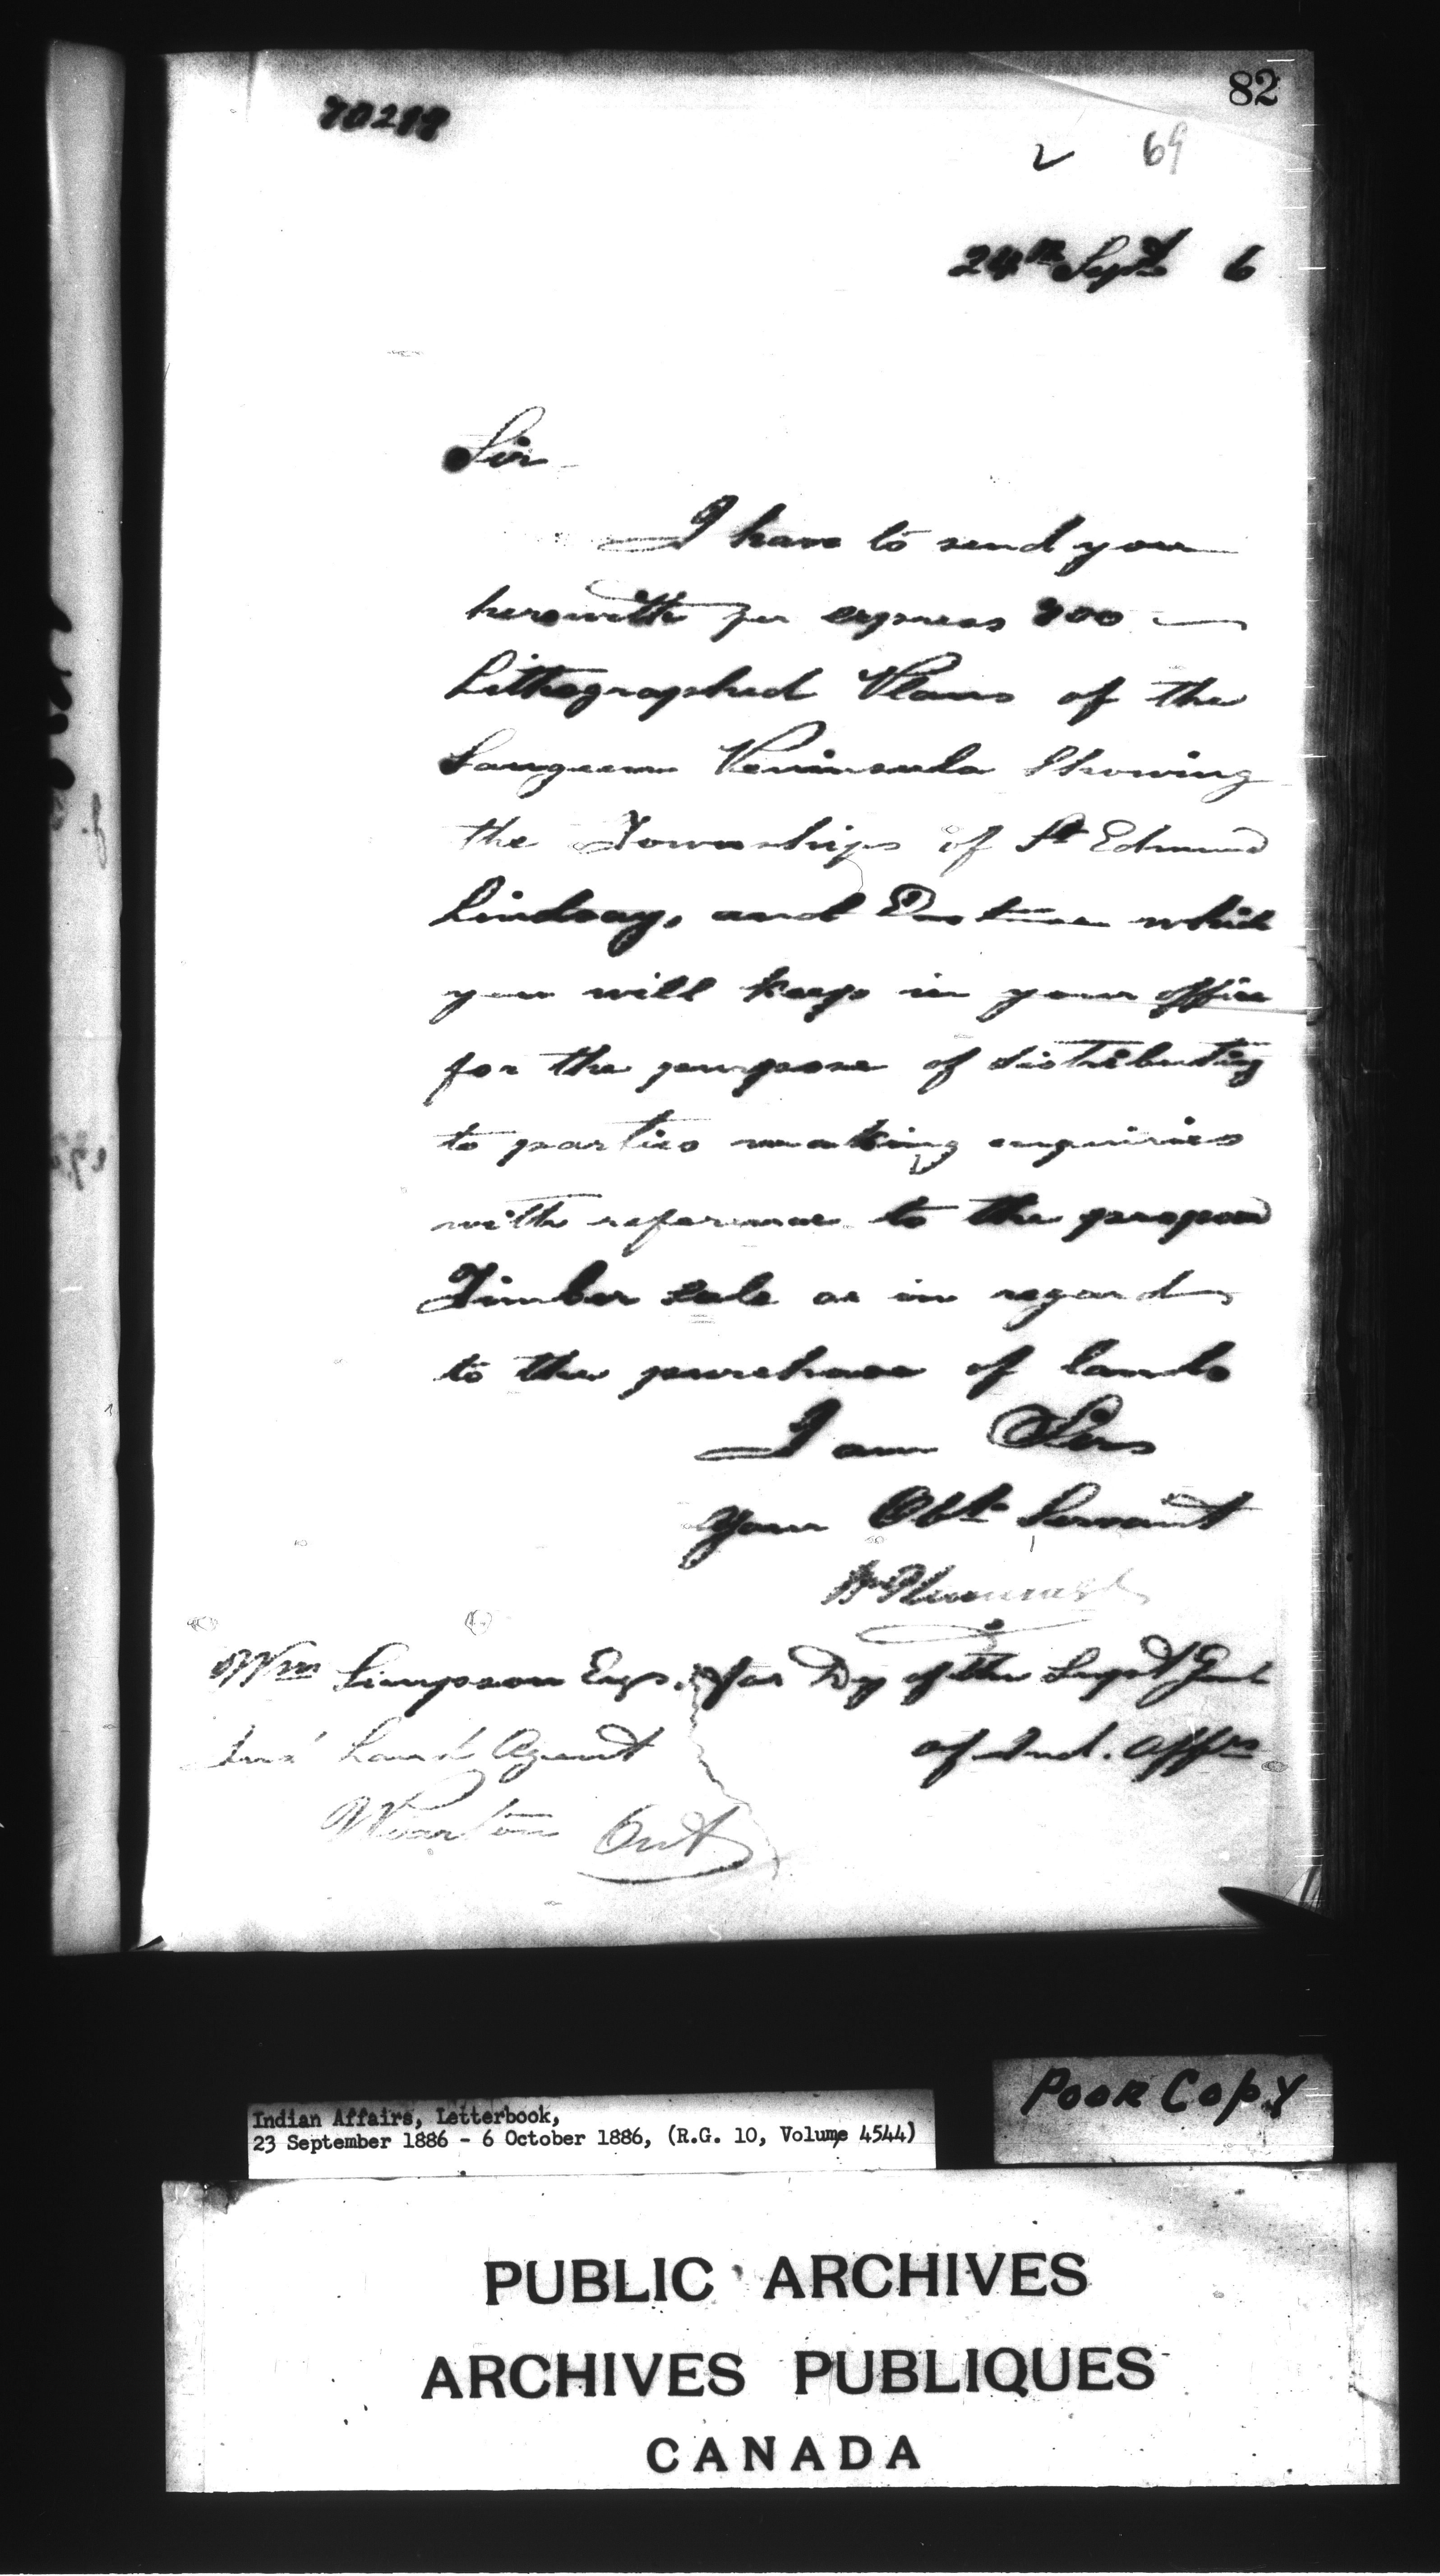 82
69
24th Sept 6
Sir
I have to send you
herewith per express
Lithographed Plans of the
Saugeen Peninsula Showing
the Townships of St Edmund
Lindsay, and Eastnor which
you will keep in your office
for the purpose of distributing
to parties making enquiries
with reference to the proposed
Timber sale or in regard
to the purchase of lands
I am Sir
Your Obt Servant
Wm Simpson Esqr. for Dy of the Supt Genl
Ind Land Agent of Ind. Affrs
Wiarton Ont
Indian Affairs, Letterbook,
23 September 1886 - 6 October 1886, (R.G. 10, Volume 4544)
POOR COPY
PUBLIC ARCHIVES
ARCHIVES PUBLIQUES
CANADA